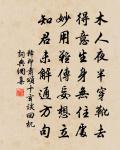 木人夜半穿靴去
得意生身無住處
妙用難傳妄想立
知君未解通方向
釋印肅頌十玄談回机
詞典網集